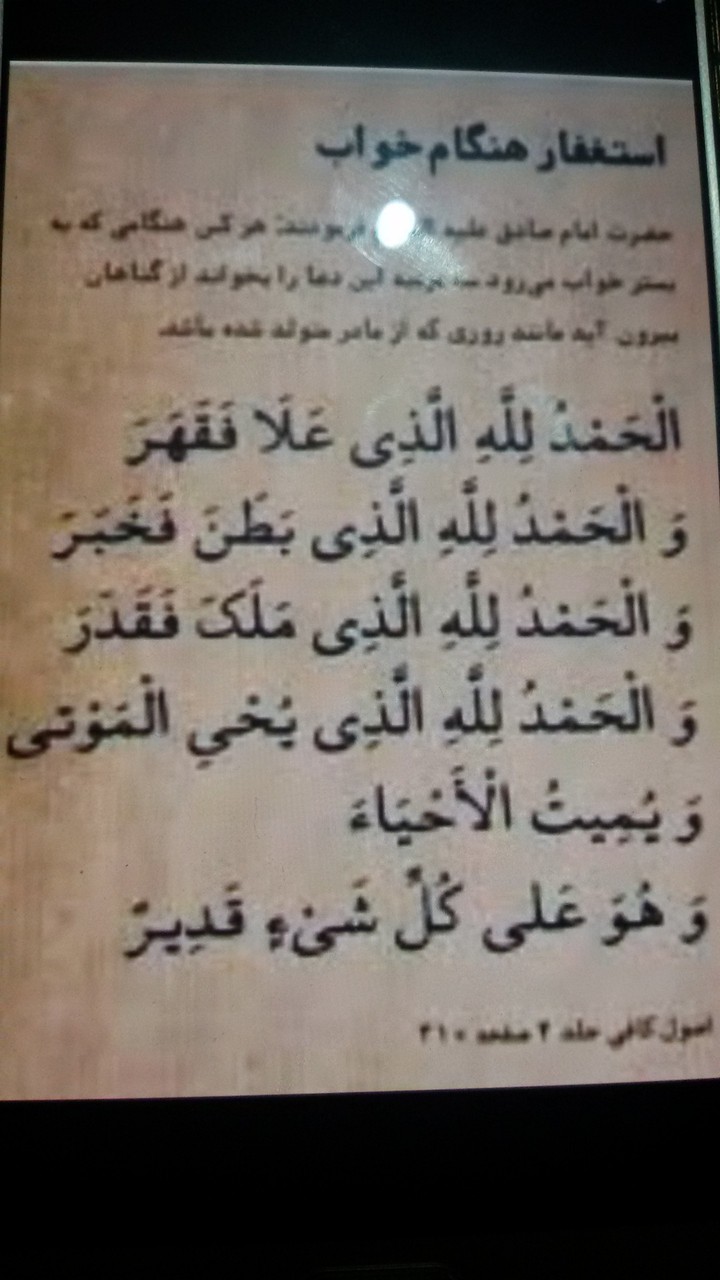 استغفار هنگام خواب
حضرت امام صادق علیه فرمودند: هر کس هنگامی که به
بستر خواب می‌رود سه مرتبه این دعا را بخواند از گناهان
بیرون آید مانند روزی که از مادر متولد شده باشد.
الْحَمْدُ لِلَّهِ الَّذِی عَلَا فَقَهَرَ
وَ الْحَمْدُ لِلَّهِ الَّذِی بَطَنَ فَخَبَرَ
وَ الْحَمْدُ لِلَّهِ الَّذِی مَلَکَ فَقَدَرَ
وَ الْحَمْدُ لِلَّهِ الَّذِی یُحْیِ الْمَوْتی
وَ یُمِیتُ الْأَحْیَاءَ
وَ هُوَ عَلی کُلِّ شَیْءٍ قَدِیرٌ
اصول کافی جلد ۴ صفحه ۳۱۰